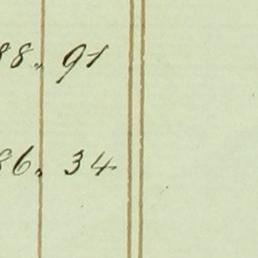 88. 91
86. 34